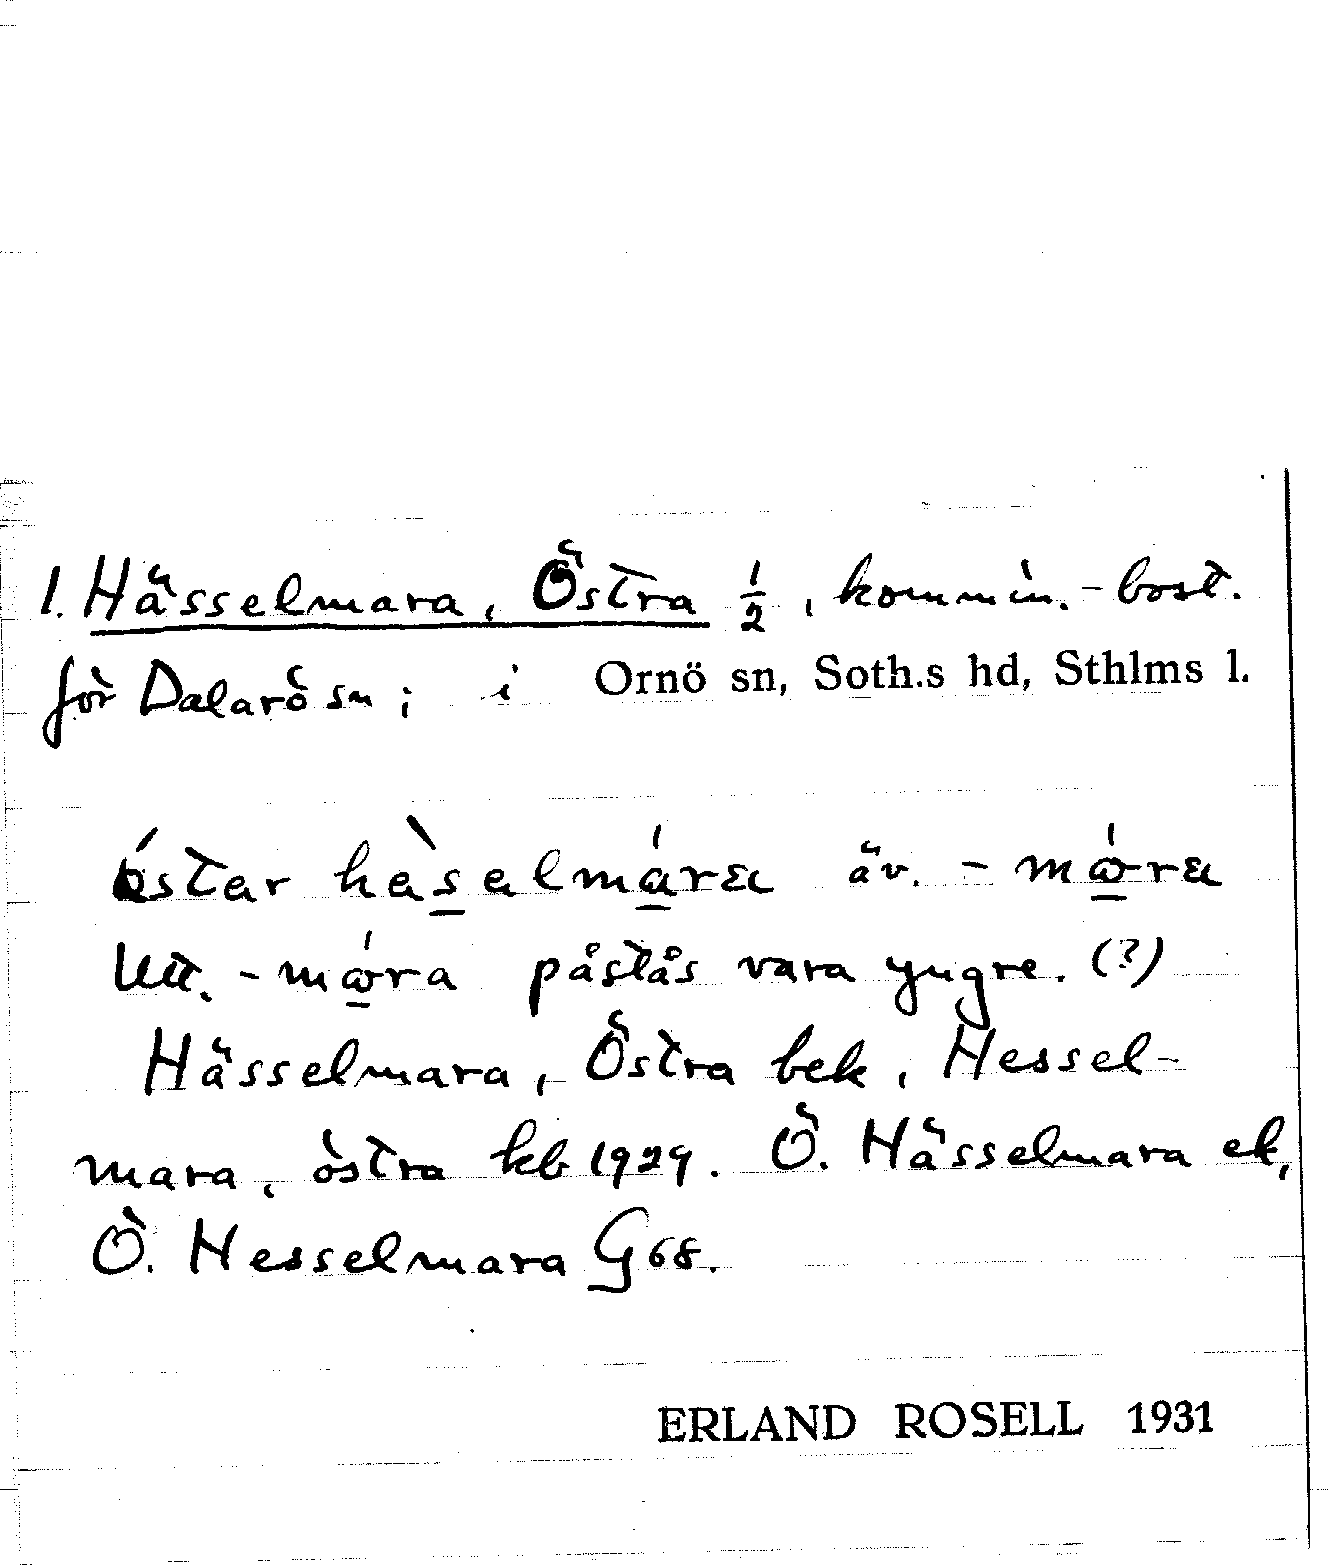 1. Hässelmara, Östra 1/2, kommin.-bost.
för Dalarö sn; i Ornö sn, Soth.s hd, Sthlms l.
östar hèsalmára äv. -mára
Utt. -mára påstås vara yngre. (?)
Hässelmara, Östra bek, Hessel-
mara, östra kb 1929. Ö. Hässelmara ek,
Ö. Hesselmara G 68.
ERLAND ROSELL 1931